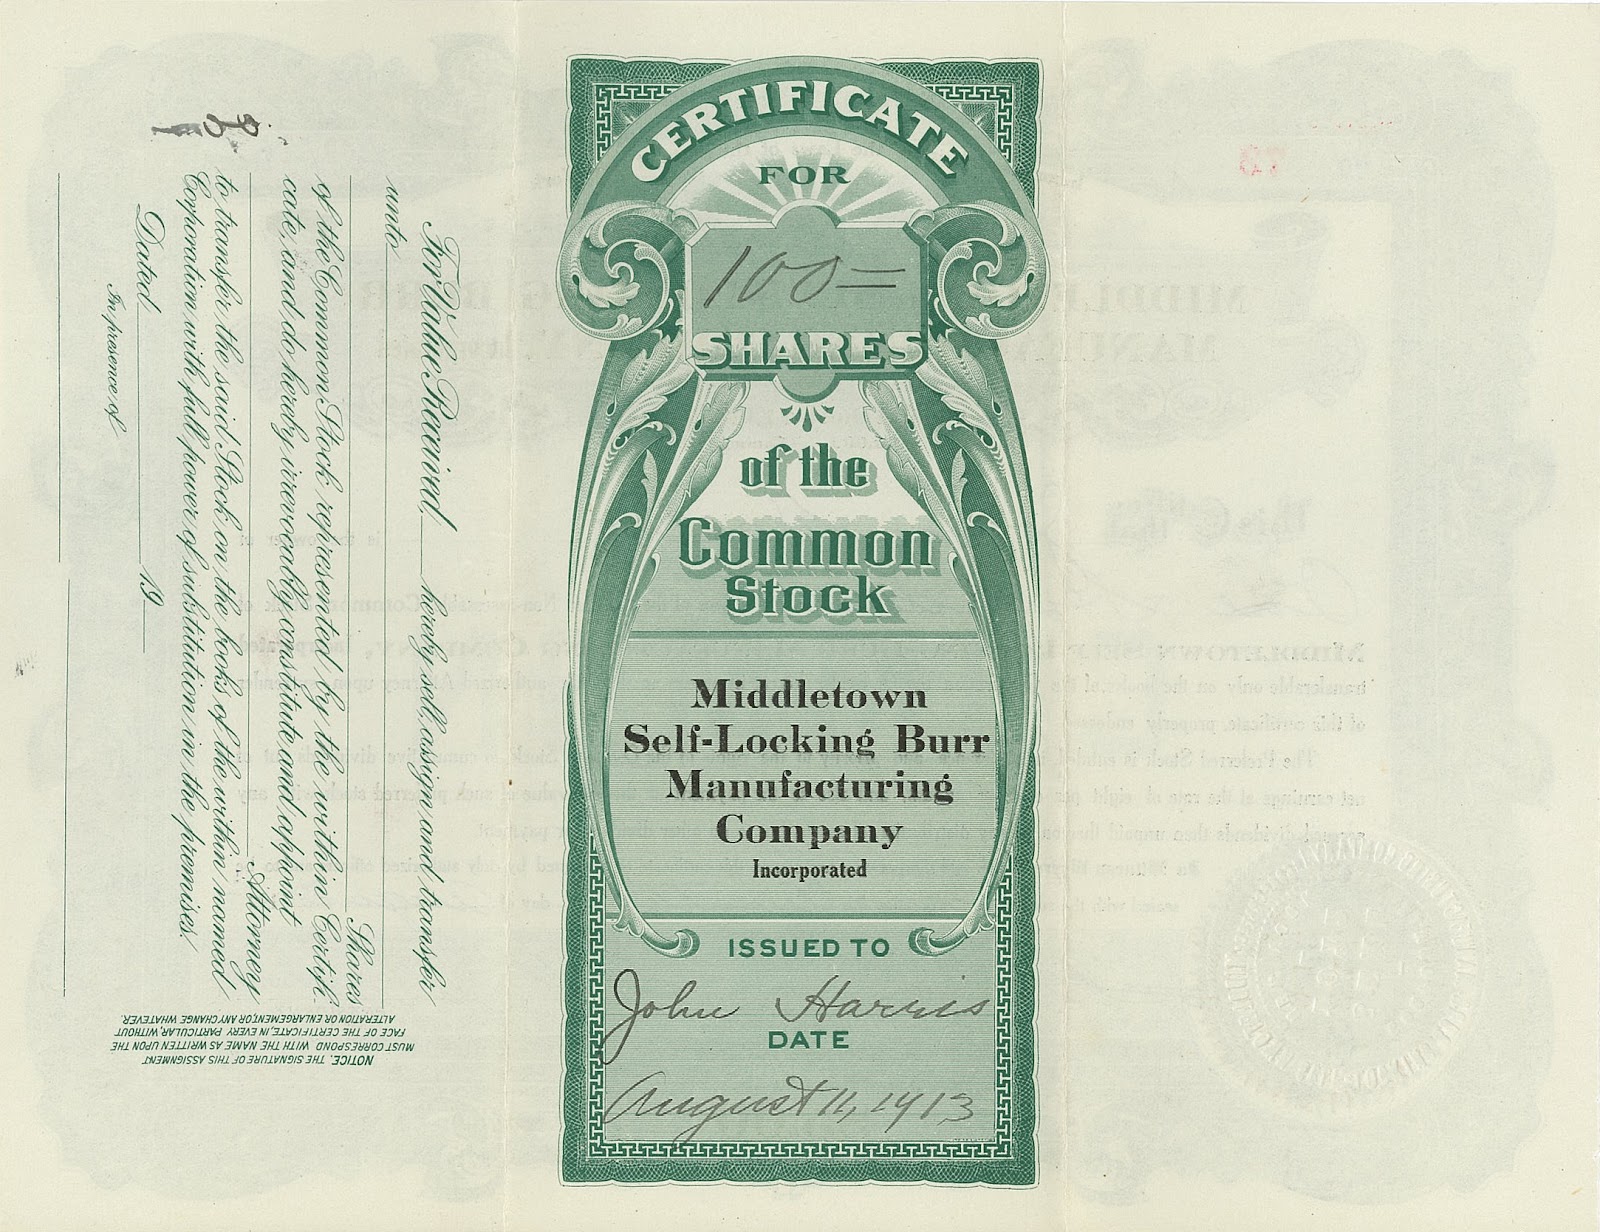 CERTIFICATE
FOR
100=
SHARES
of the
Common
Stock
Middletown
Self-Locking Burr
Manufacturing
Company
Incorporated
ISSUED TO
John Harris
DATE
August 11, 1913
For Value Received, hereby sell, assign and transfer
unto
Shares
of the Common Stock represented by the within Certifi-
cate, and do hereby irrevocably constitute and appoint
Attorney
to transfer the said Stock on the books of the within named
Corporation with full power of substitution in the premises.
Dated 19
In presence of
NOTICE. THE SIGNATURE OF THIS ASSIGNMENT
MUST CORRESPOND WITH THE NAME AS WRITTEN UPON THE
FACE OF THE CERTIFICATE, IN EVERY PARTICULAR, WITHOUT
ALTERATION OR ENLARGEMENT, OR ANY CHANGE WHATEVER.